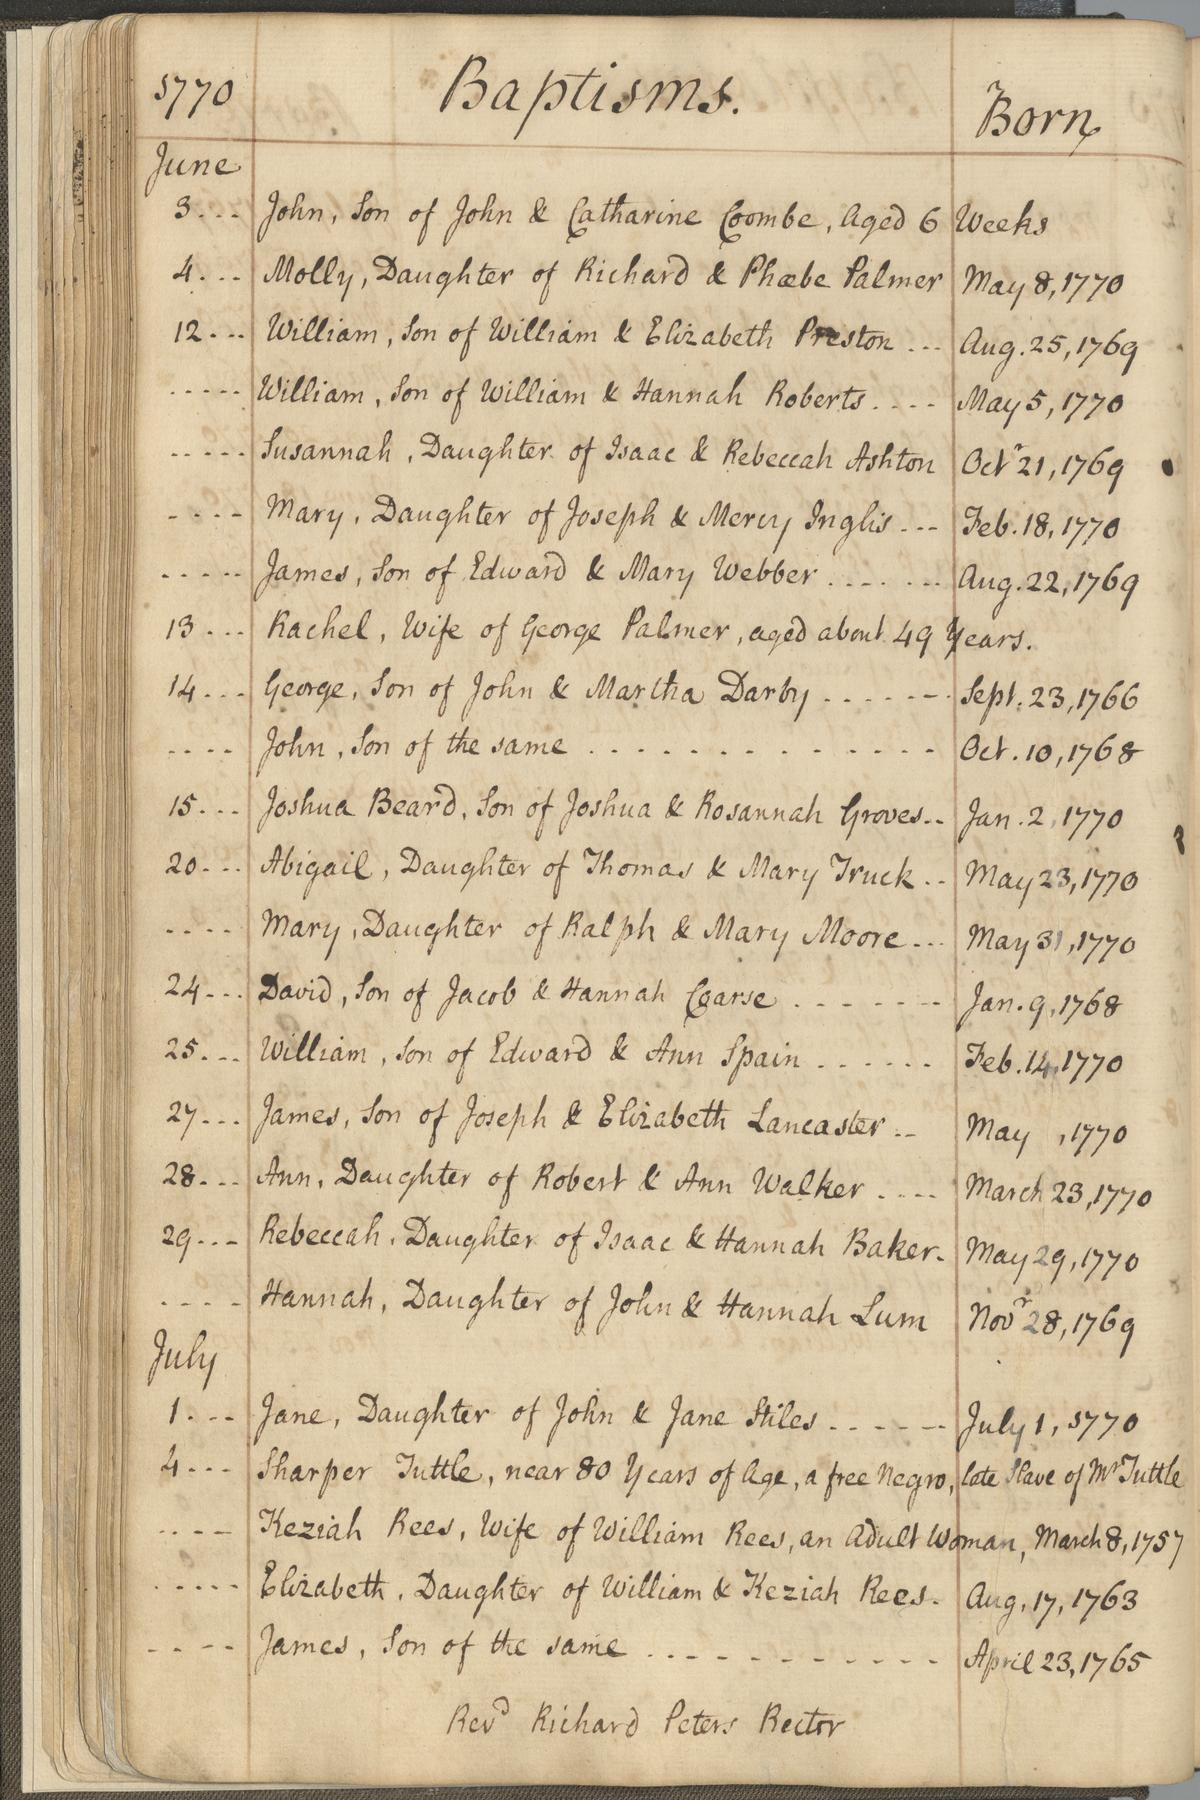 1770 Baptisms. Born
June
3... John, Son of John & Catharine Coombe, Aged 6 Weeks
4... Molly, Daughter of Richard & Phœbe Palmer May 8, 1770
12... William, Son of William & Elizabeth Preston ... Aug. 25, 1769
..... William, Son of William & Hannah Roberts .... May 5, 1770
..... Susannah, Daughter of Isaac & Rebeccah Ashton Octr 21, 1769
.... Mary, Daughter of Joseph & Mercy Inglis ... Feb. 18, 1770
..... James, Son of Edward & Mary Webber ....... Aug. 22, 1769
13... Rachel, Wife of George Palmer, aged about 49 Years.
14... George, Son of John & Martha Darby ....... Sept. 23, 1766
.... John, Son of the same ............. Oct. 10, 1768
15... Joshua Beard, Son of Joshua & Rosannah Groves.. Jan. 2, 1770
20... Abigail, Daughter of Thomas & Mary Truck .. May 23, 1770
.... Mary, Daughter of Ralph & Mary Moore ... May 31, 1770
24... David, Son of Jacob & Hannah Coarse ....... Jan. 9, 1768
25... William, Son of Edward & Ann Spain ...... Feb. 14, 1770
27... James, Son of Joseph & Elizabeth Lancaster .. May , 1770
28... Ann, Daughter of Robert & Ann Walker .... March 23, 1770
29... Rebeccah, Daughter of Isaac & Hannah Baker. May 29, 1770
.... Hannah, Daughter of John & Hannah Lum Novr 28, 1769
July
1... Jane, Daughter of John & Jane Stiles ...... July 1, 1770
4... Sharper Tuttle, near 80 Years of Age, a free Negro, late Slave of Mr Tuttle
.... Keziah Rees, Wife of William Rees, an Adult Woman, March 8, 1757
..... Elizabeth, Daughter of William & Keziah Rees. Aug. 17, 1763
.... James, Son of the same ............ April 23, 1765
Revd Richard Peters Rector